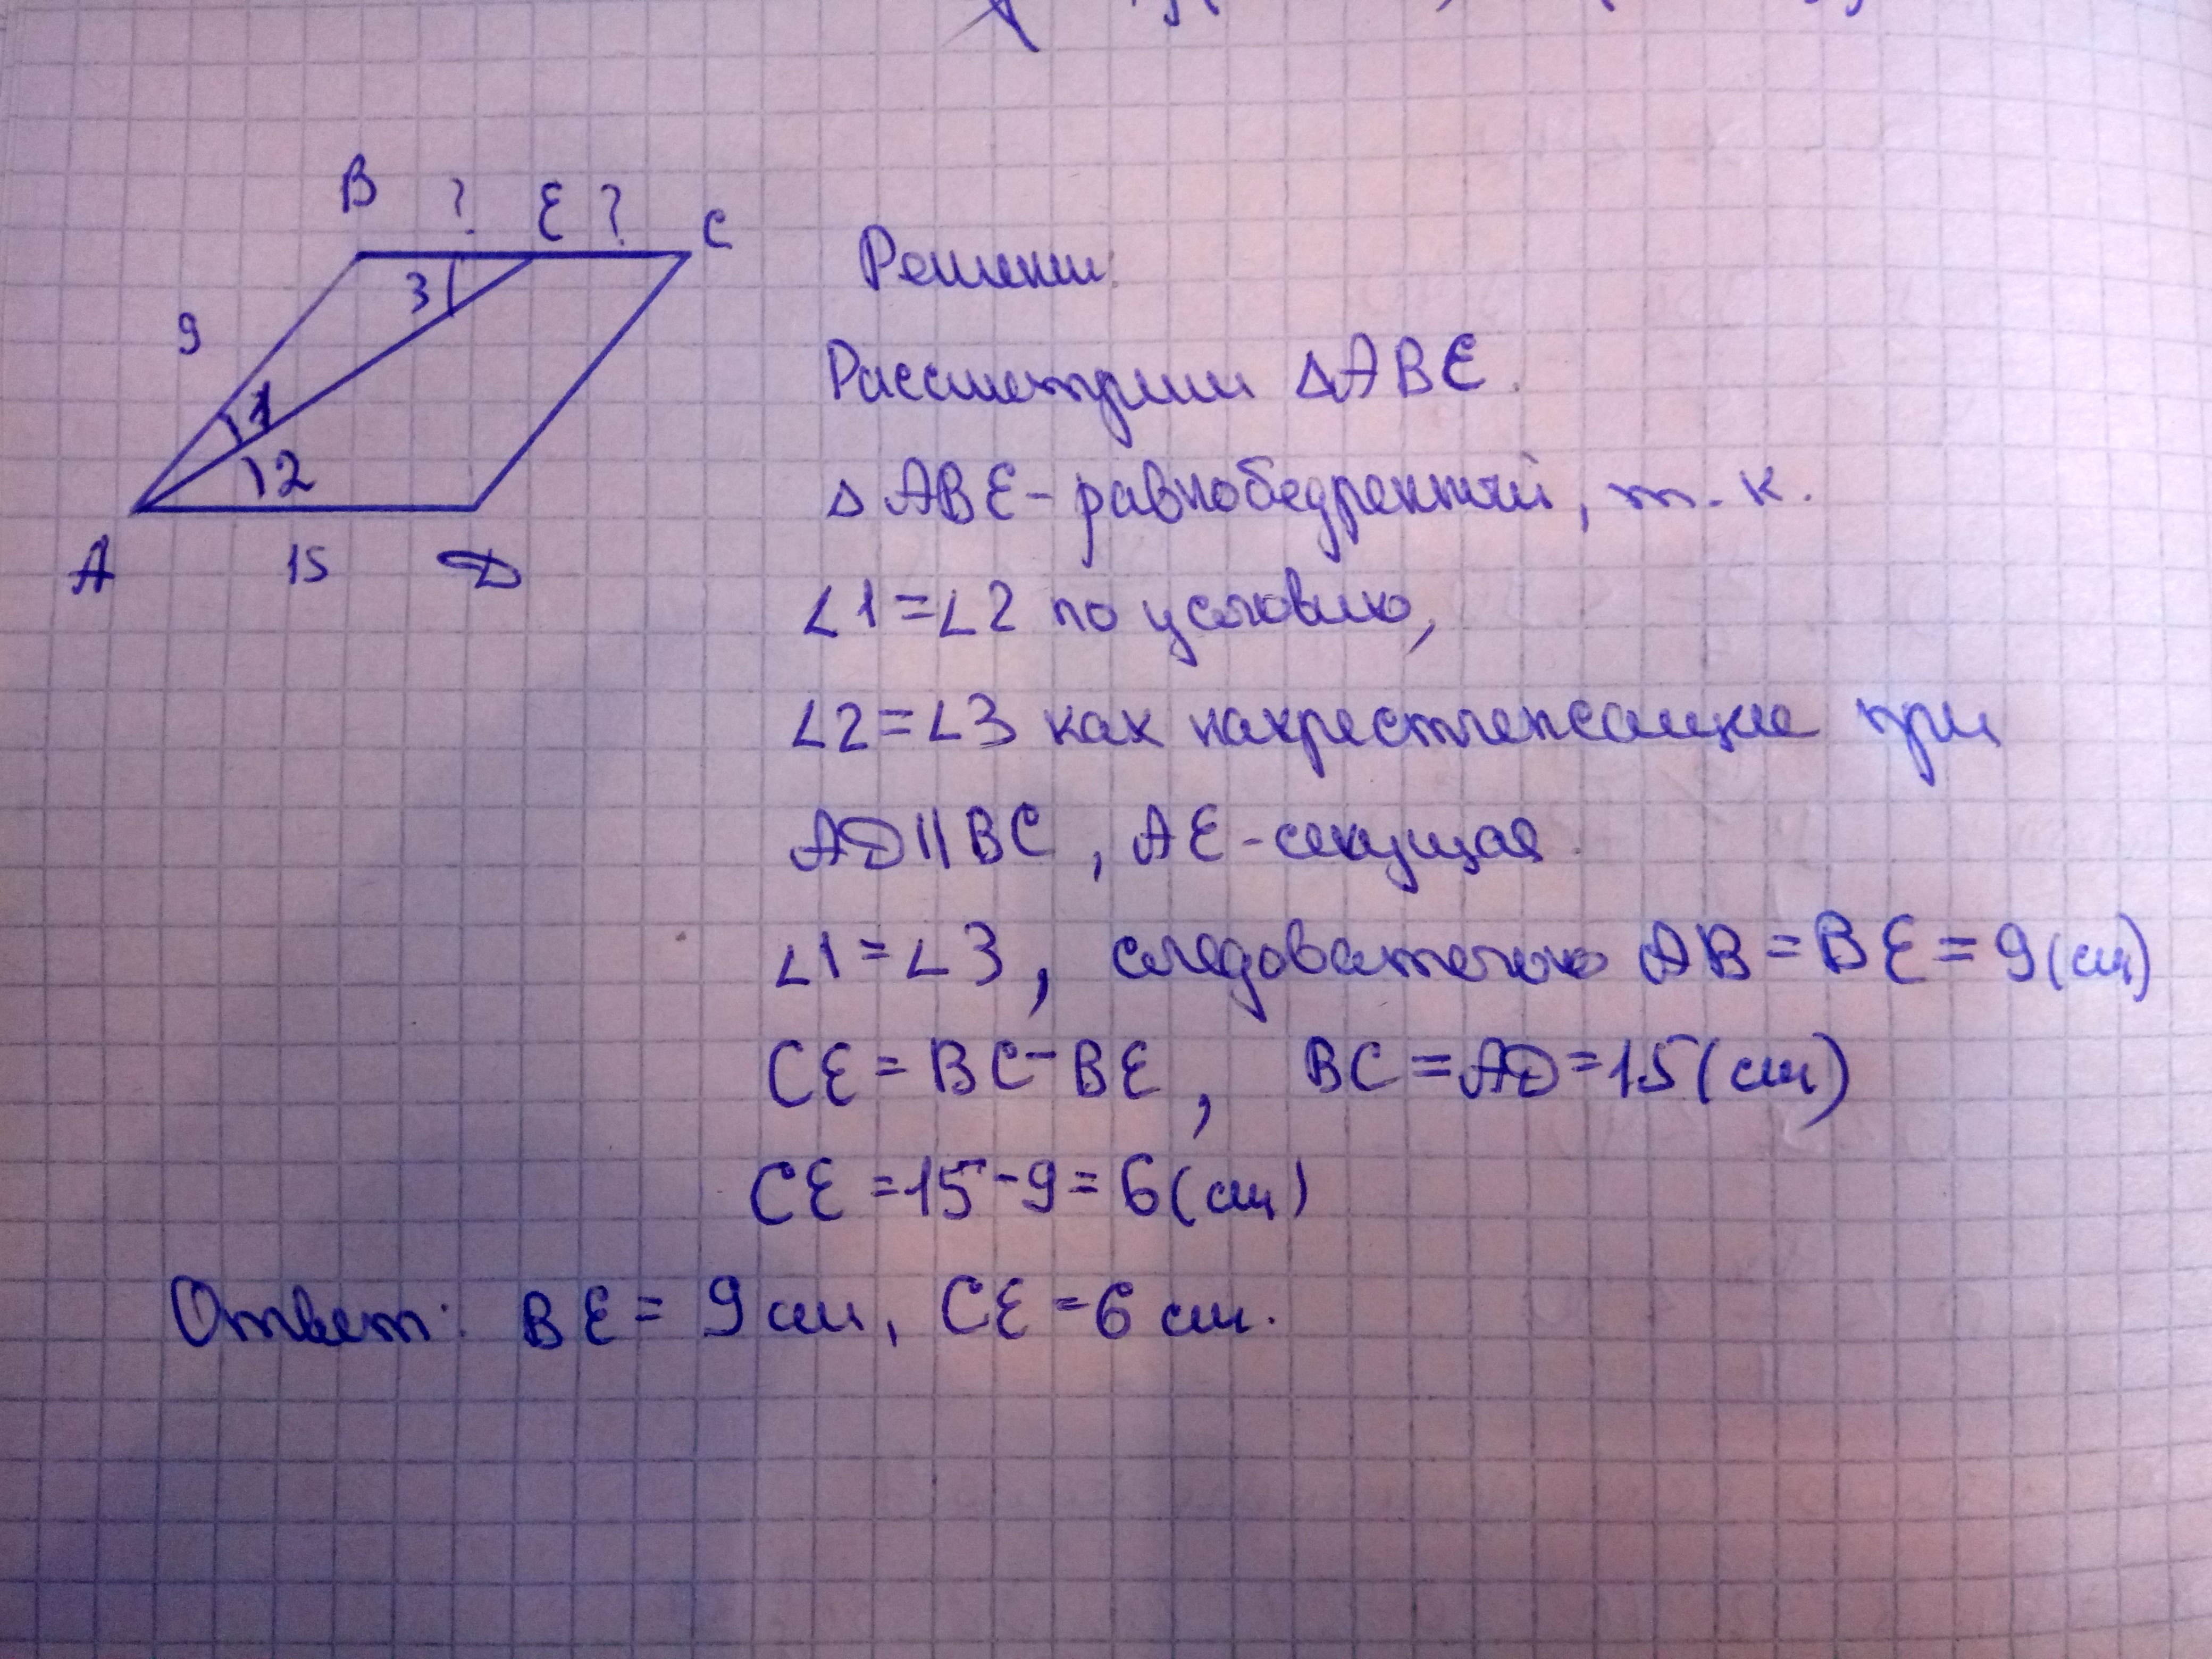 B ? E ? C
3
9
1
2
A 15 D
Решение.
Рассмотрим △ABE.
△ABE - равнобедренный, т. к.
∠1=∠2 по условию,
∠2=∠3 как накрестлежащие при
AD||BC, AE - секущая
∠1=∠3, следовательно AB=BE=9(см)
CE=BC-BE, BC=AD=15(см)
CE=15-9=6(см)
Ответ: BE=9 см, CE=6 см.